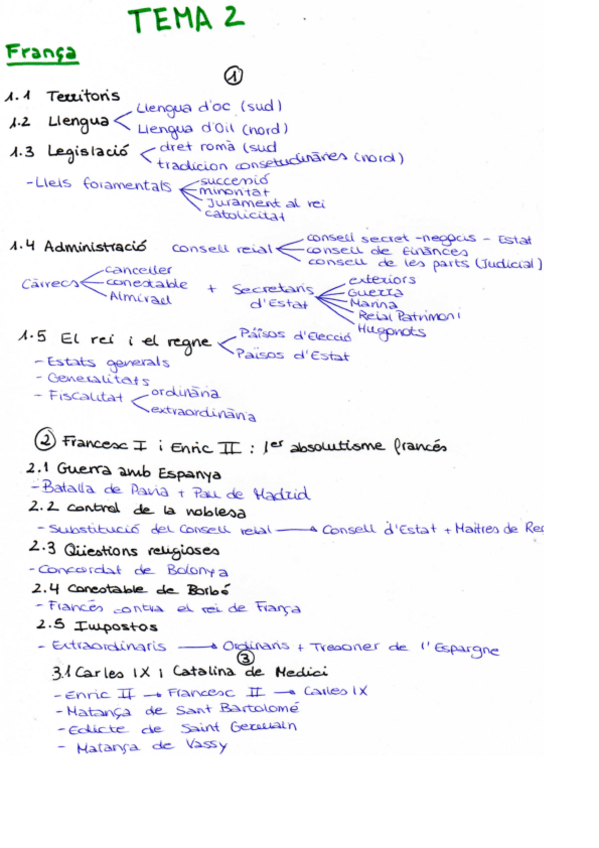 TEMA 2
França
1
1.1 Territoris
1.2 Llengua
Llengua d'oc (sud)
Llengua d'Oil (nord)
1.3 Legislació
dret romà (sud
tradicion consetudinàries (nord)
-Lleis foramentals
successió
minoritat
Jurament al rei
catolicitat
1.4 Administració
consell reial
consell secret -negocis - Estat
consell de finànces
consell de les parts (Judicial)
Càrrecs
canceller
conestable
Almirall
+ Secretaris d'Estat
exteriors
Guerra
Marina
Reial Patrimoni
Hugonots
1.5 El rei i el regne
Països d'Elecció
Països d'Estat
- Estats generals
- Generalitats
- Fiscalitat
ordinària
extraordinària
2 Francesc I i Enric II : 1er absolutisme francés
2.1 Guerra amb Espanya
-Batalla de Pavia + Pau de Madrid
2.2 control de la noblesa
- Substitució del Consell reial → Consell d'Estat + Maitres de Req
2.3 Qüestions religioses
-Concordat de Bolonya
2.4 Conestable de Borbó
- Francés contra el rei de França
2.5 Impostos
- Extraordinaris → Ordinaris + Tresorer de l'Espargne
3
3.1 Carles IX i Catalina de Medici
- Enric II → Francesc II → Carles IX
- Matança de Sant Bartolomé
- Edicte de Saint Germain
- Matança de Vassy